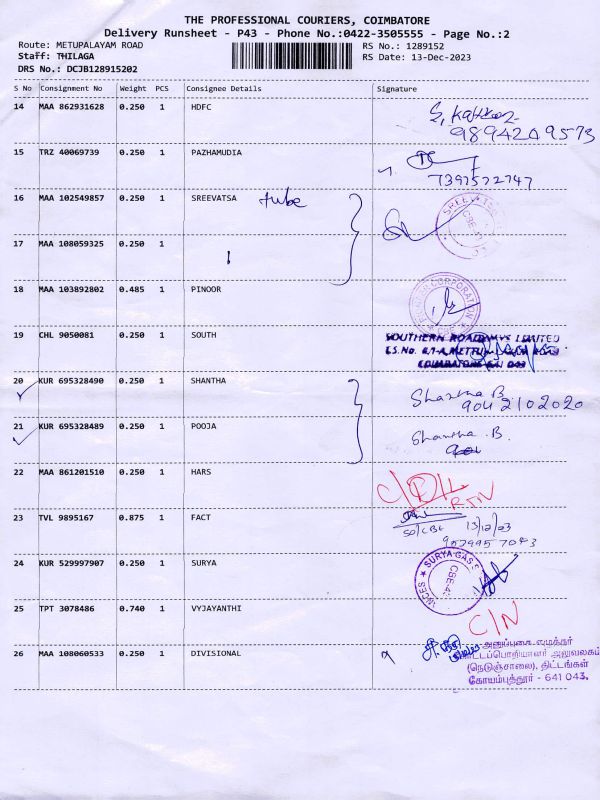 THE PROFESSIONAL COURIERS, COIMBATORE
Delivery Runsheet - P43 - Phone No.:0422-3505555 - Page No.:2
Route: METUPALAYAM ROAD RS No.: 1289152
Staff: THILAGA RS Date: 13-Dec-2023
DRS No.: DCJB128915202
S No Consignment No Weight PCS Consignee Details Signature
14 MAA 862931628 0.250 1 HDFC
9894209573
15 TRZ 40069739 0.250 1 PAZHAMUDIA
7397572747
16 MAA 102549857 0.250 1 SREEVATSA tube
17 MAA 108059325 0.250 1
18 MAA 103892802 0.485 1 PINOOR
19 CHL 9050081 0.250 1 SOUTH SOUTHERN ROADWAYS LIMITED
COIMBATORE-641 043
20 KUR 695328490 0.250 1 SHANTHA Shantha B.
9042102020
21 KUR 695328489 0.250 1 POOJA Shantha .B.
22 MAA 861201510 0.250 1 HARS
RTN
23 TVL 9895167 0.875 1 FACT
13/12/23
24 KUR 529997907 0.250 1 SURYA SURYA GAS
25 TPT 3078486 0.740 1 VYJAYANTHI C/N
26 MAA 108060533 0.250 1 DIVISIONAL
அலுவலகம்
(நெடுஞ்சாலை), திட்டங்கள்
கோயம்புத்தூர் - 641 043.